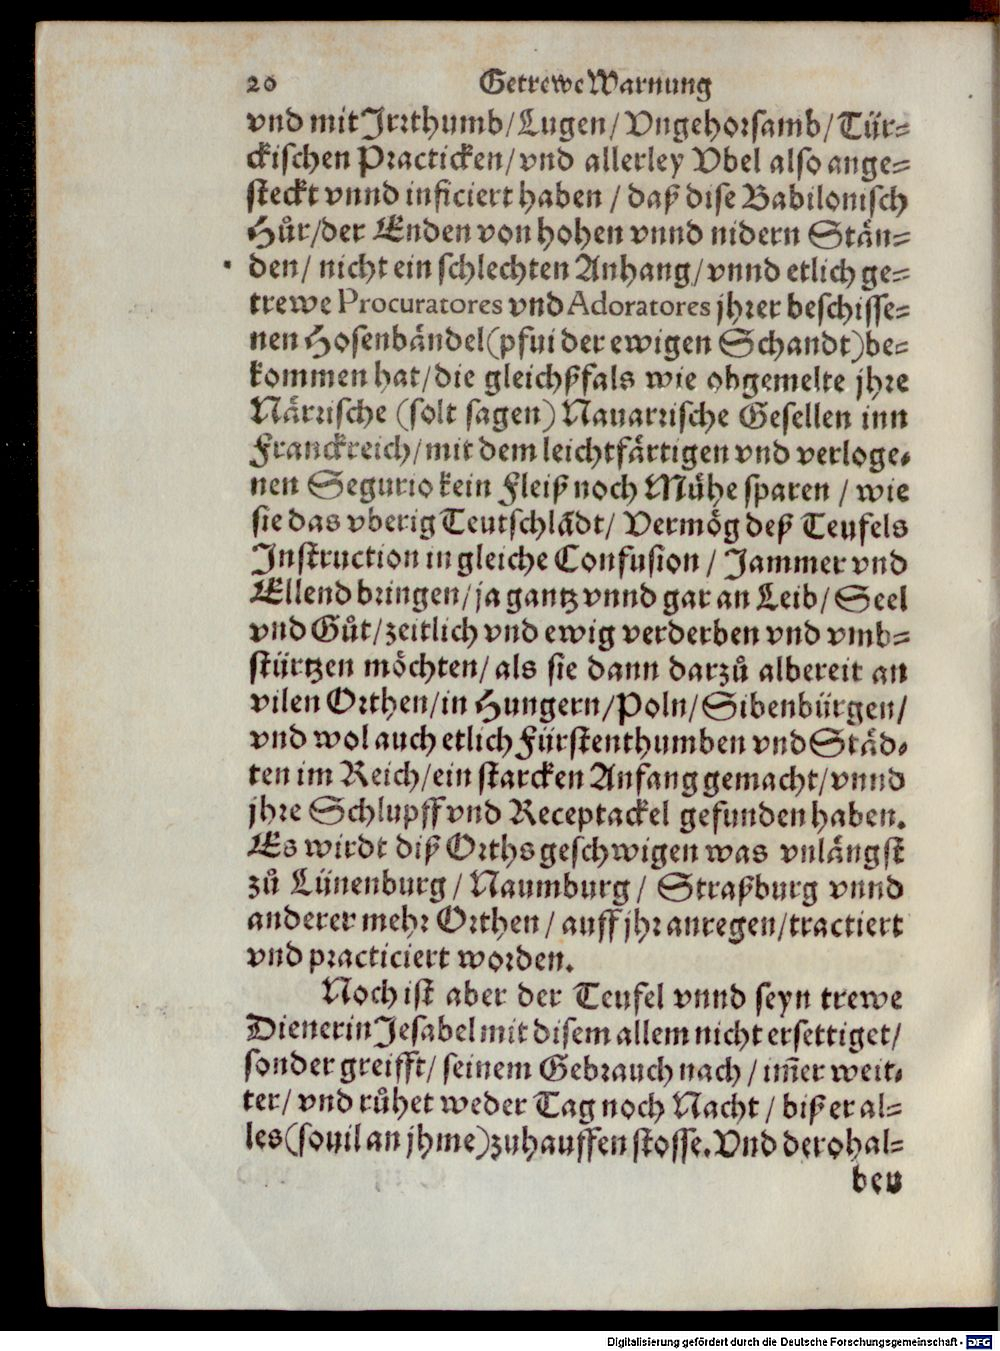 20 Getrewe Warnung
vnd mit Irrthumb/Lugen/Vngehorsamb/Tür-
ckischen Practicken/vnd allerley Vbel also ange-
steckt vnnd inficiert haben / daß dise Babilonisch
Hůr/der Enden von hohen vnnd nidern Stän-
den/ nicht ein schlechten Anhang/vnnd etlich ge-
trewe Procuratores vnd Adoratores jhrer beschisse-
nen Hosenbändel(pfui der ewigen Schandt)be-
kommen hat/die gleichßfals wie obgemelte jhre
Närrische (solt sagen) Nauarrische Gesellen inn
Franckreich/mit dem leichtfärtigen vnd verloge-
nen Segurio kein Fleiß noch Mühe sparen / wie
sie das vberig Teutschlãdt/ Vermög deß Teufels
Instruction in gleiche Confusion / Jammer vnd
Ellend bringen/ja gantz vnnd gar an Leib/ Seel
vnd Gůt/zeitlich vnd ewig verderben vnd vmb-
stürtzen möchten/ als sie dann darzů albereit an
vilen Orthen/in Hungern/Poln/Sibenbürgen/
vnd wol auch etlich Fürstenthumben vnd Städ-
ten im Reich/ein starcken Anfang gemacht/vnnd
jhre Schlupff vnd Receptackel gefunden haben.
Es wirdt diß Orths geschwigen was vnlängst
zů Lünenburg / Naumburg / Straßburg vnnd
anderer mehr Orthen / auff jhr anregen/tractiert
vnd practiciert worden.
Noch ist aber der Teufel vnnd seyn trewe
Dienerin Jesabel mit disem allem nicht ersettiget/
sonder greifft/ seinem Gebrauch nach / im̃er weit-
ter/ vnd růhet weder Tag noch Nacht / biß er al-
les(souil an jhme)zuhauffen stosse. Vnd derohal-
ben
Digitalisierung gefördert durch die Deutsche Forschungsgemeinschaft - DFG